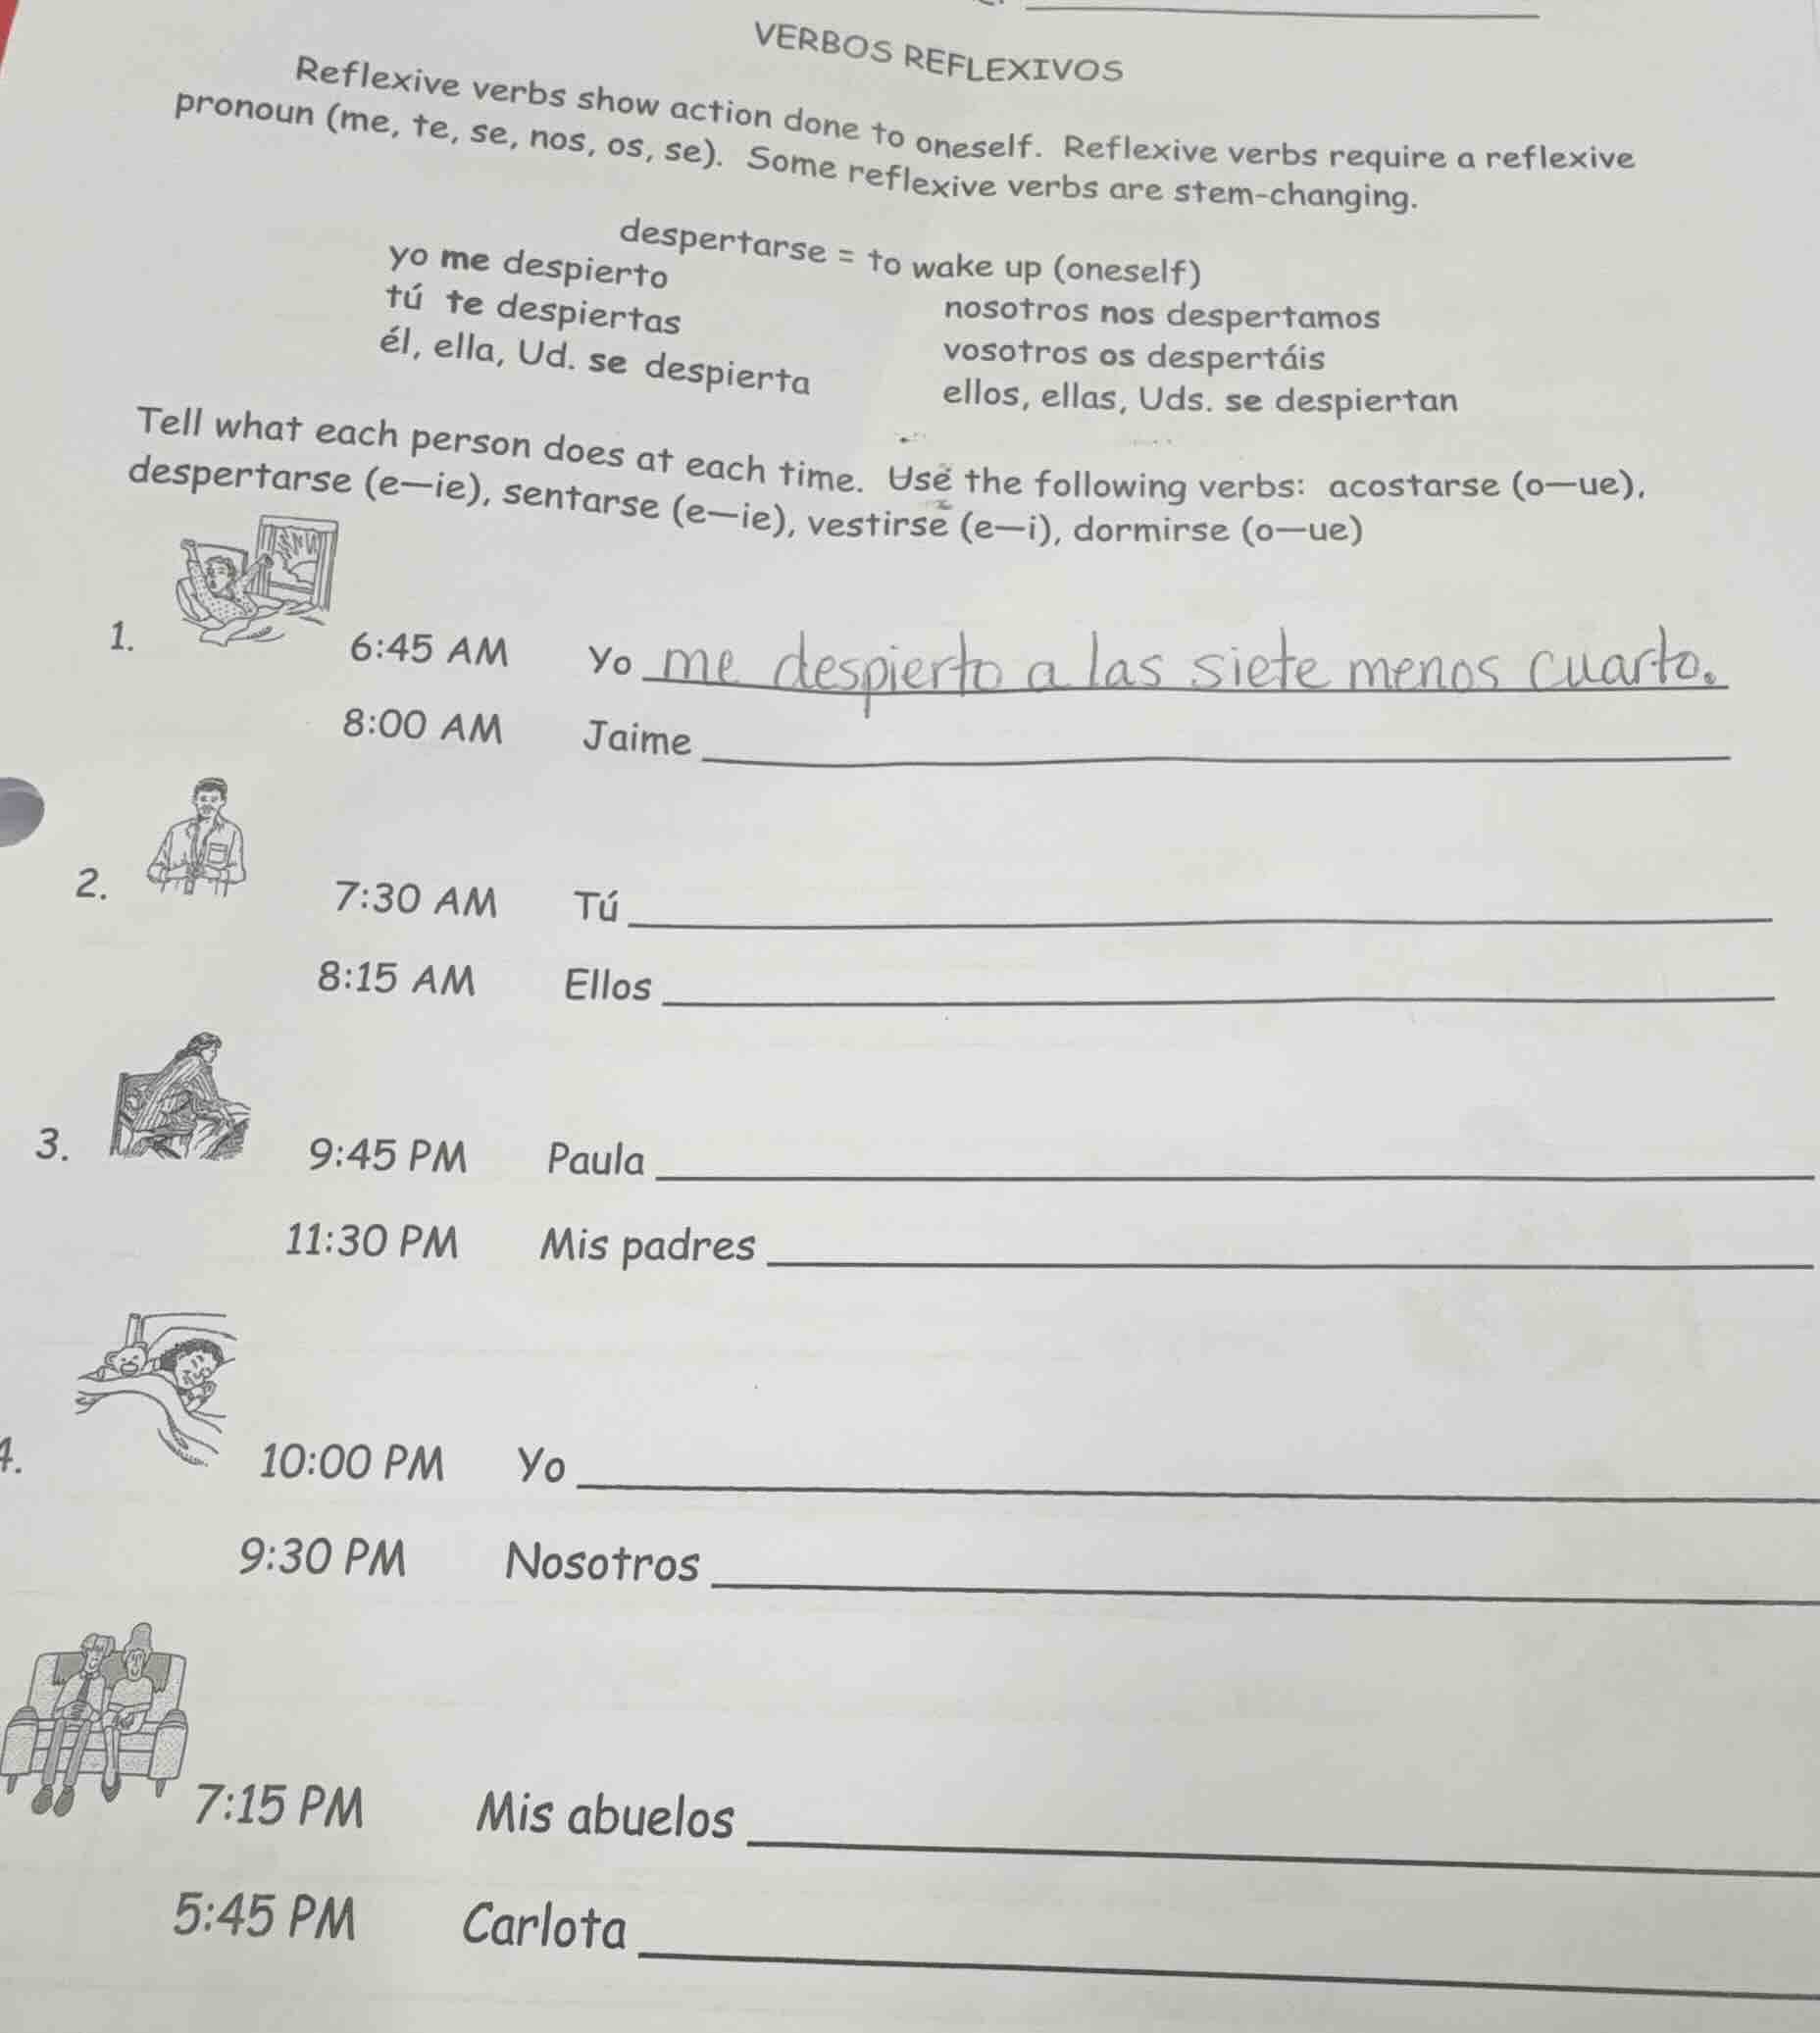 VERBOS REFLEXIVOS
Reflexive verbs show action done to oneself. Reflexive verbs require a reflexive
pronoun (me, te, se, nos, os, se). Some reflexive verbs are stem-changing.
despertarse = to wake up (oneself)
yo me despierto
tú te despiertas
él, ella, Ud. se despierta
nosotros nos despertamos
vosotros os despertáis
ellos, ellas, Uds. se despiertan
Tell what each person does at each time. Use the following verbs: acostarse (o—ue),
despertarse (e—ie), sentarse (e—ie), vestirse (e—i), dormirse (o—ue)
1. 6:45 AM Yo me despierto a las siete menos cuarto.
8:00 AM Jaime
2. 7:30 AM Tú
8:15 AM Ellos
3. 9:45 PM Paula
11:30 PM Mis padres
4. 10:00 PM Yo
9:30 PM Nosotros
7:15 PM Mis abuelos
5:45 PM Carlota